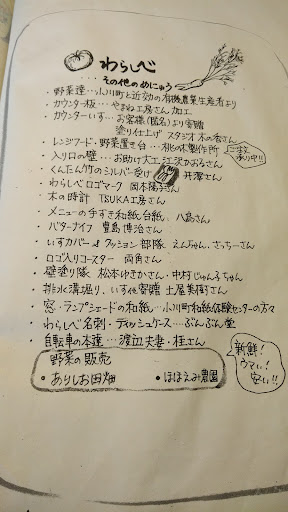 わらしべ
...その他のめにゅう
・野菜達…小川町と近郊の有機農業生産者より
・カウンター板…やまね工房さん加工
・カウンターいす…お客様(匿名)より寄贈
塗り仕上げ スタジオ木の香さん
・レンジフード・野菜置き台…桃の木製作所
ご注文承り中!!
・入り口の壁…お助け大工 江沢かおるさん
・くんたん竹のシルバー受け 丹澤さん
・わらしべロゴマーク 岡本陽子さん
・木の時計 TSUKA工房さん
・メニューの手すき和紙台紙 八島さん
・バターナイフ 豊島博治さん
・いすカバー&クッション部隊 えんちゃん、さっちーさん
・ロゴ入りコースター 両角さん
・壁塗り隊 松本ゆきかさん・中村じゅん子ちゃん
・排水溝堀り、いす他寄贈 土屋美樹さん
・窓・ランプシェードの和紙…小川町和紙体験センターの方々
・わらしべ名刺・ティッシュケース…ぶんぶん堂
・自転車の本達…渡辺夫妻・桂さん
野菜の販売
・ありしお田畑 ・ほほえみ農園
新鮮!
ウマい!
安い!!